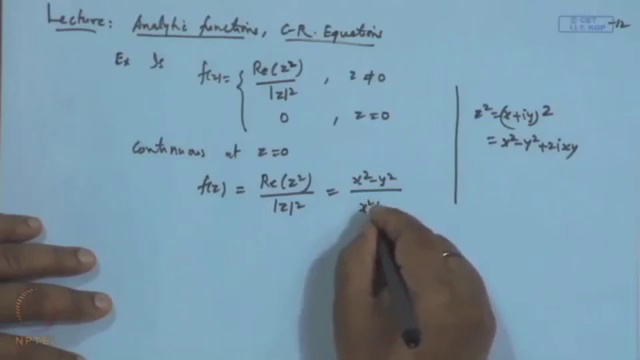 Lecture: Analytic functions, C-R. Equations
Ex Is f(z) = { Re(z²)/|z|² , z ≠ 0
0 , z=0
Continuous at z=0
f(z) = Re(z²)/|z|² = x²-y²/x²
z²=(x+iy)2
= x²-y²+2ixy
NPTEL